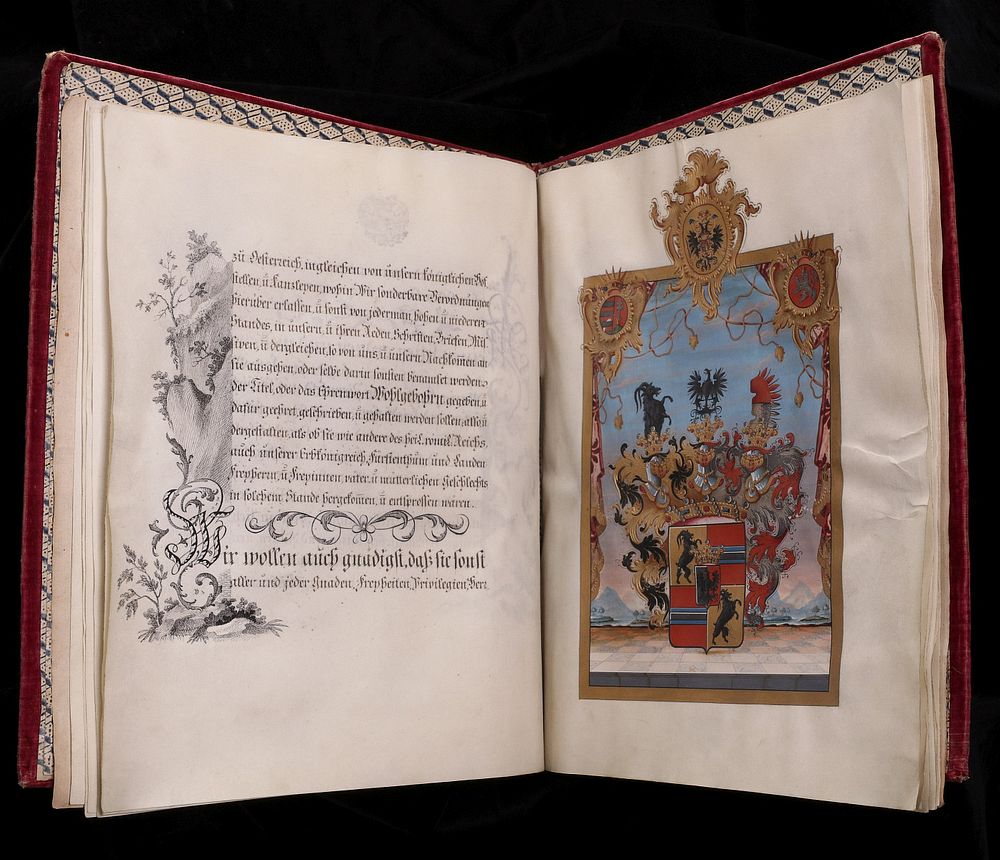 zu Oesterreich, ingleichen von unsern königlichen Hof
stellen, ü Kansleyen, wohin Wir sonderbare Verordnungen
hierüber erlassen, ü sonst von jederman, hohen ü niederen
Standes, in unsern, ü ihren Reden, Schriften, Briefen, Mis
siven, ü dergleichen, so von uns, ü unsern Nachkomen an
sie ausgehen, oder selbe darin sonsten benamset werden,
der Titel, oder das Ehrenwort Wohlgebohrn gegeben, ü
dafür geehret, geschrieben, ü gehalten werden sollen, alles
dergestalten, als ob sie wie andere des heil. römis. Reichs,
auch unserer Erbkönigreich, Fürstenthum und Landen
Freyherrn, ü Freyinnen, väter, ü mütterlichen Geschlechts
in solchem Stande hergekomen, ü entsprossen waren.
Wir wollen auch gnädigst, daß sie sonst
aller und jeder Gnaden, Freyheiten, Privilegien, Vers